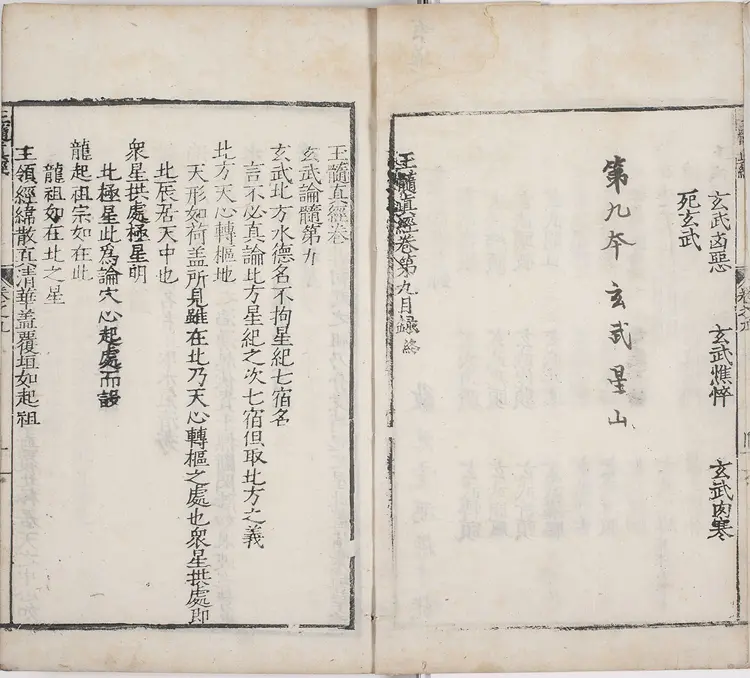 玄武凶惡
玄武憔悴
玄武肉寒
死玄武
第九本玄武星山
玉髓真經卷第九目錄終
玉髓真經卷
玄武論髓第九
玄武北方水德名不拘星紀七宿名
言不必真論北方星紀之次七宿但取北方之義
北方天心轉樞地
天形如荷盖所見雖在北乃天心轉樞之處也衆星拱處即
北辰居天中也
衆星拱處極星明
北極星此為論穴心起處而設
龍起祖宗如在此
龍祖如在北之星
主領經緯散直清華盖覆垣如起祖